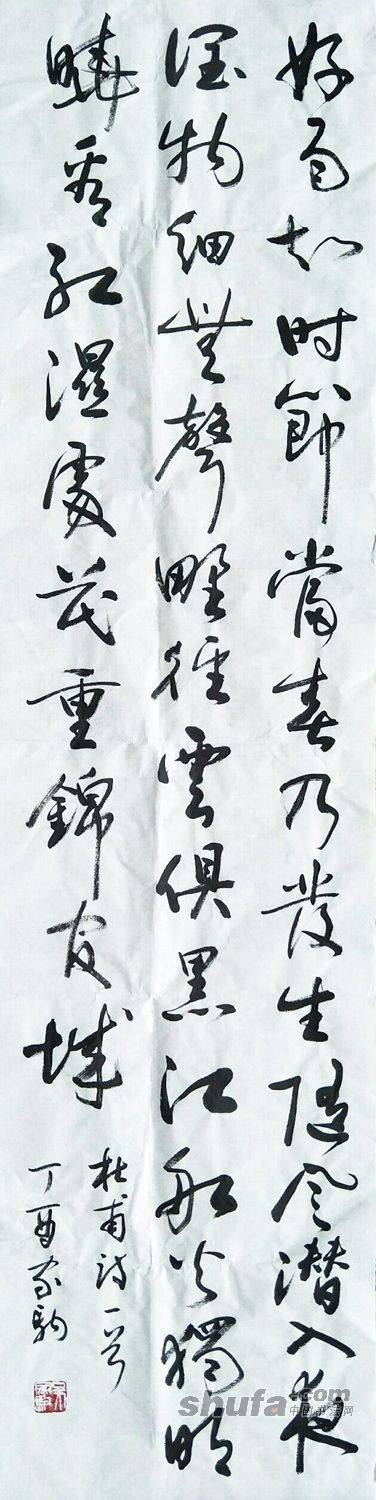 好雨知时節當春乃發生随风潜入夜
潤物細無聲野徑雲俱黑江船火獨明
曉看红濕處花重錦官城
杜甫詩一首
丁酉家駒
shufa.com
中国书法网